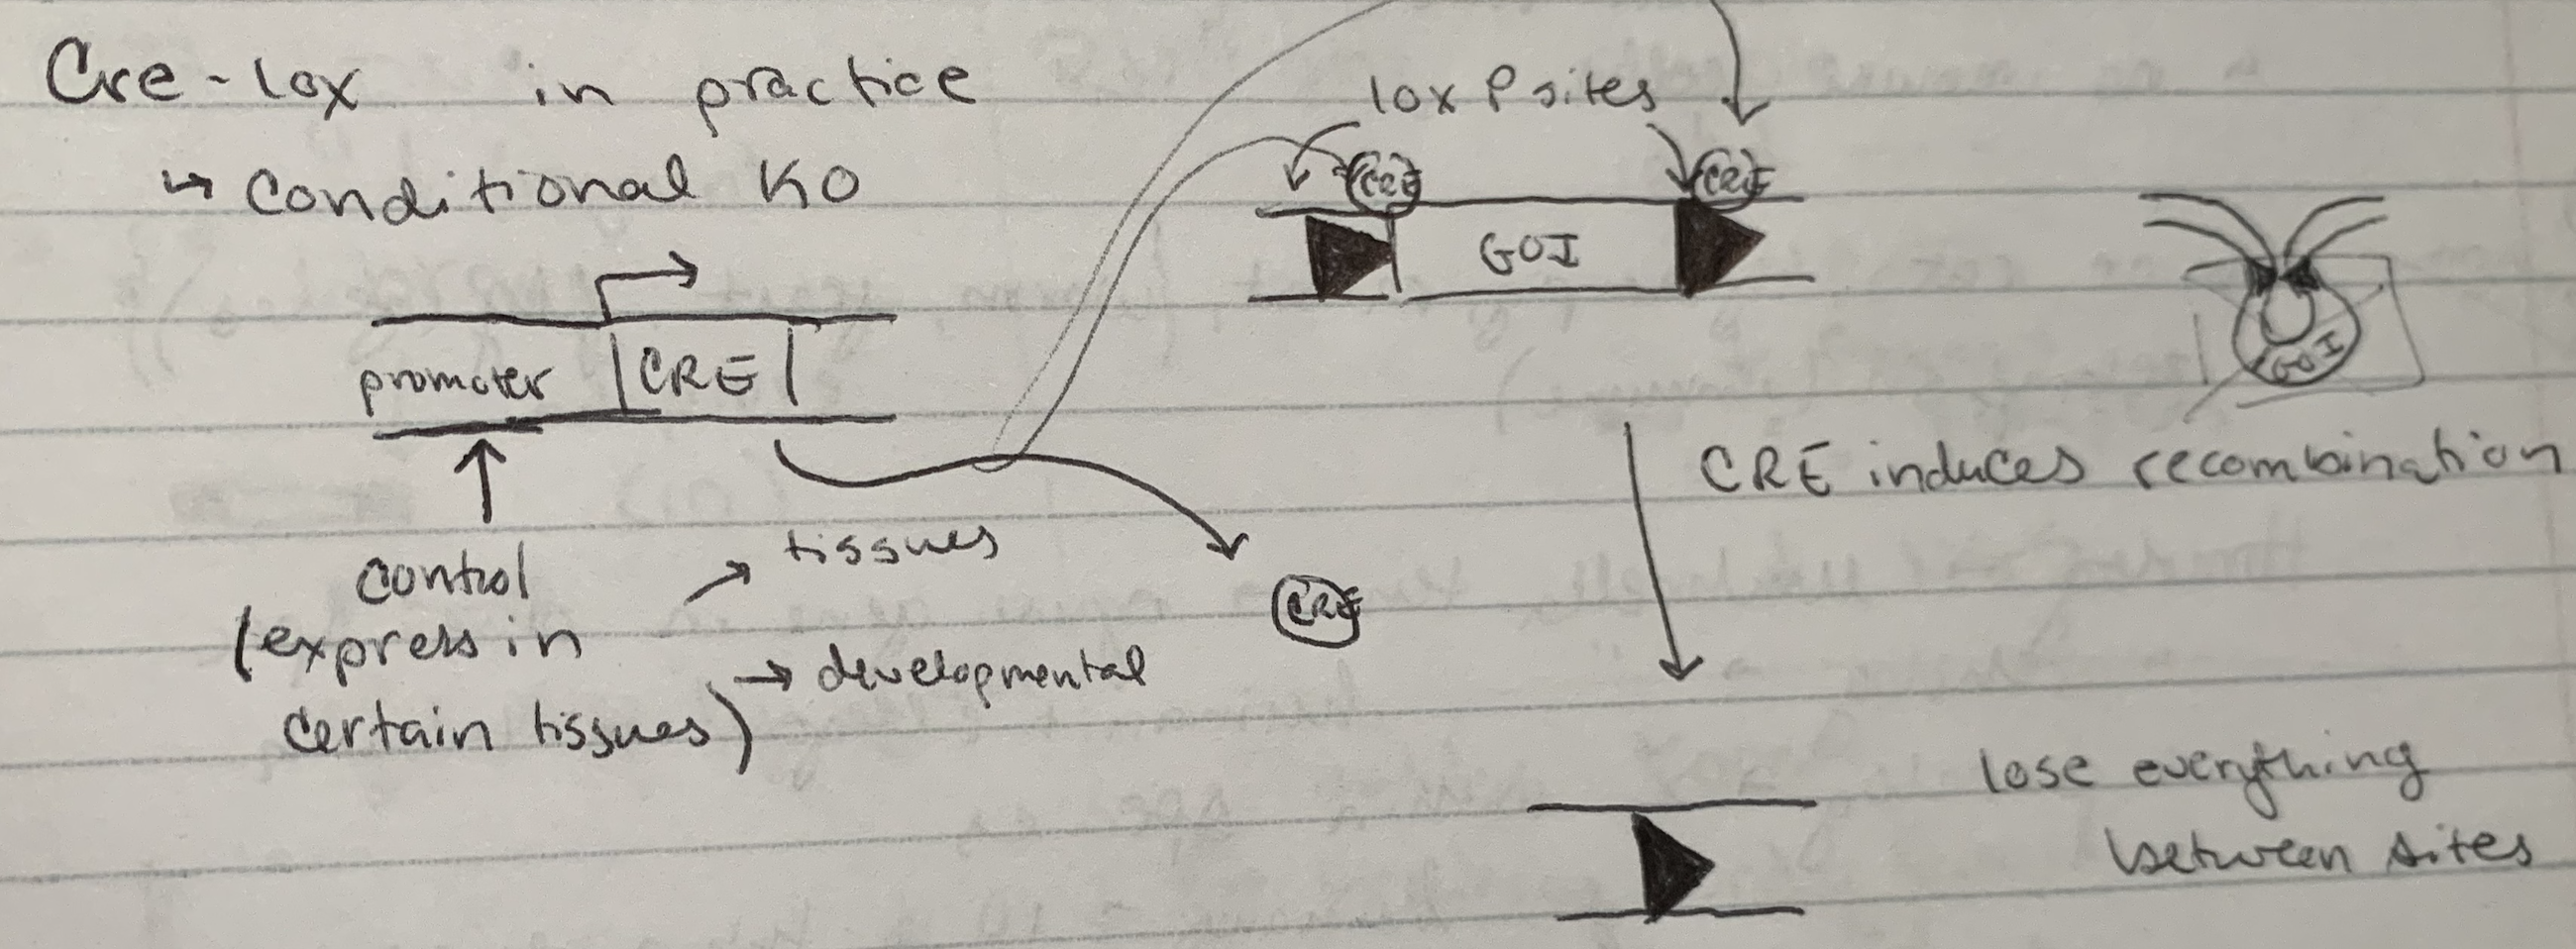 Cre-lox in practice
↳ Conditional KO
promoter |CRE|
control
(express in
certain tissues)
→ tissues
→ developmental
CRE
lox P sites
CRE CRE
GOI
GOI
CRE induces recombination
lose everything
between sites